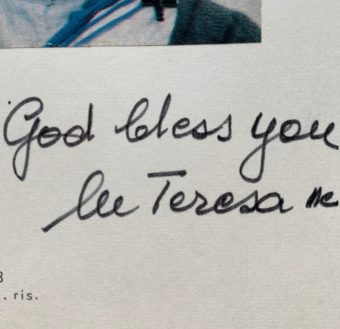 God bless you
lu Teresa mc
3
. ris.